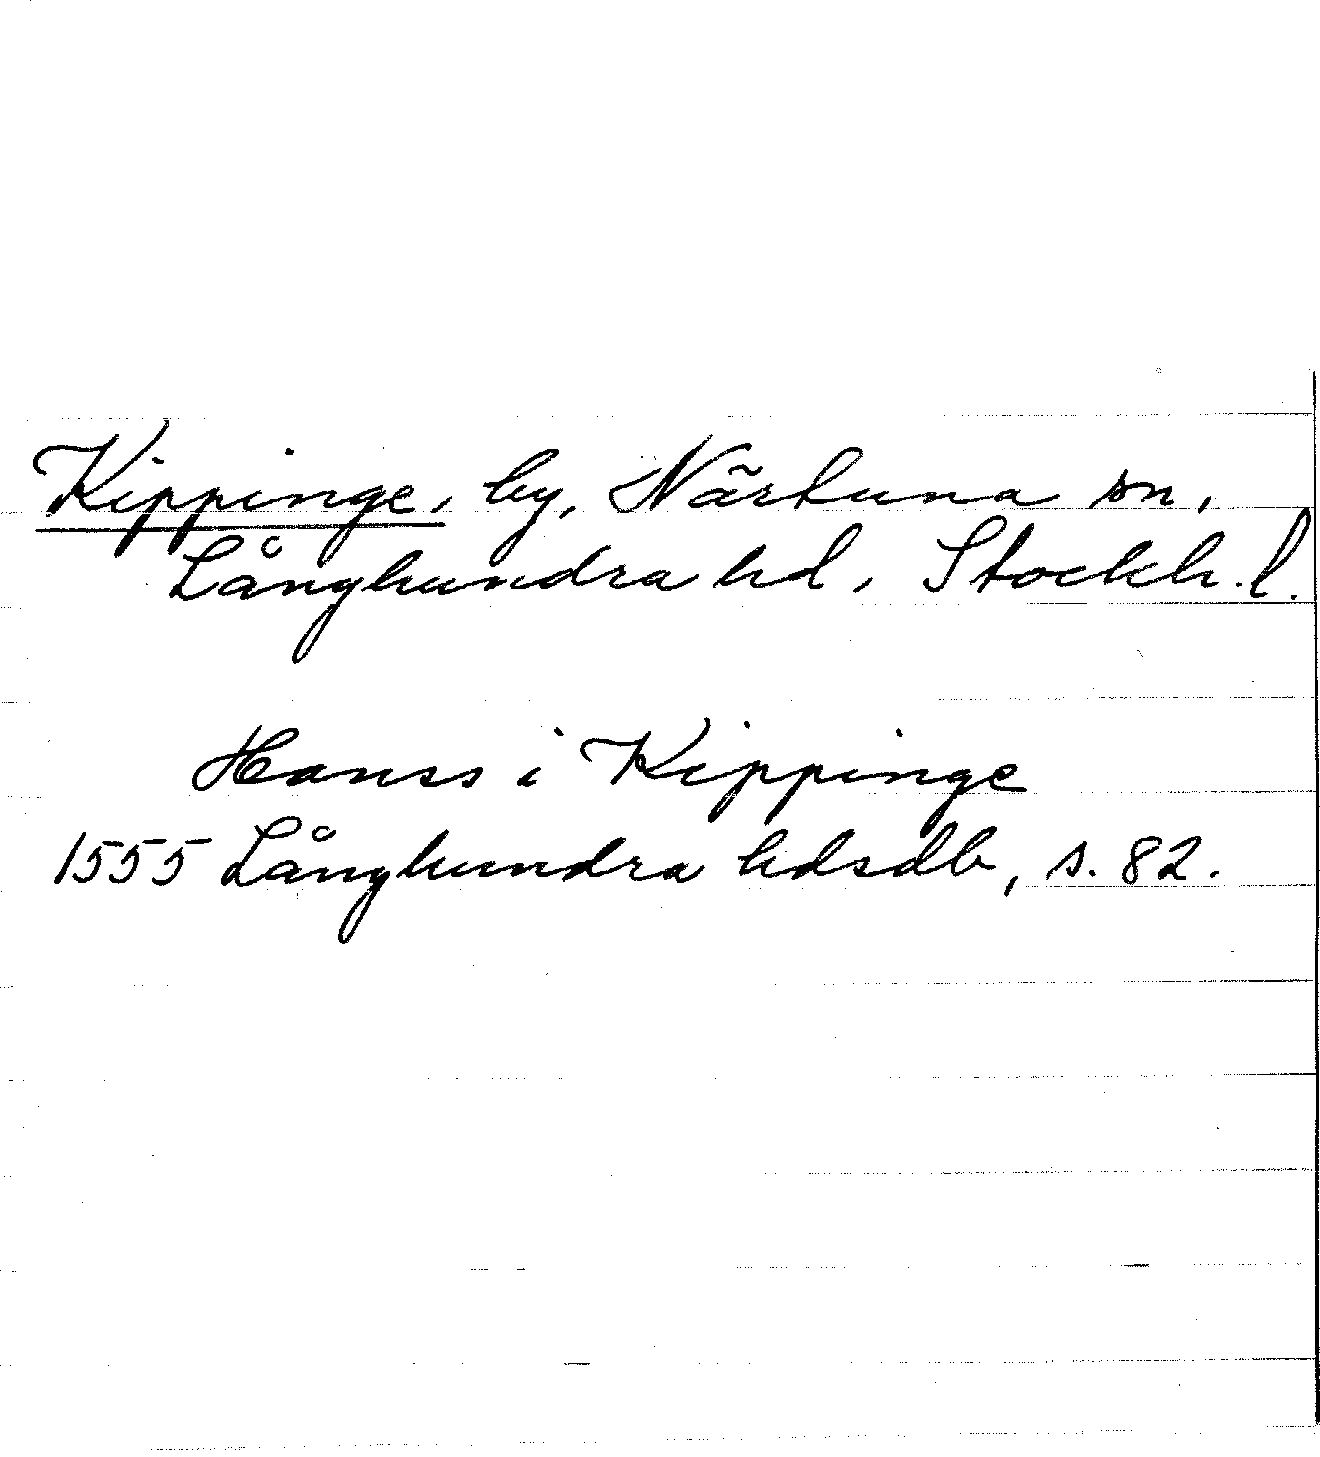 Kippinge, by, Närtuna sn,
Långhundra hd, Stockh. l.
Hanss i Kippinge
1555 Långhundra hdsdb, s. 82.